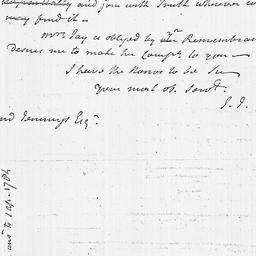 impartially and join with Truth wherever
may find it –
Mrs. Jay is obliged by Remembran
Desires me to make her Compts. to you –
I have the Honor to be Sir
your most ob. Servt.
J. J.
nd Jennings Esqr.
ansd. to 1 ap. 1784